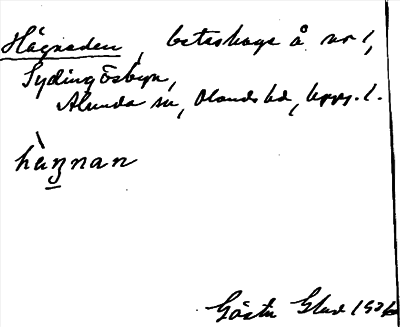 Hägnaden, beteshage å nr 1,
Sydingösbyn,
Alunda sn, Olands hd, Upps. l.
hàŋnan
Gösta Glad 1936